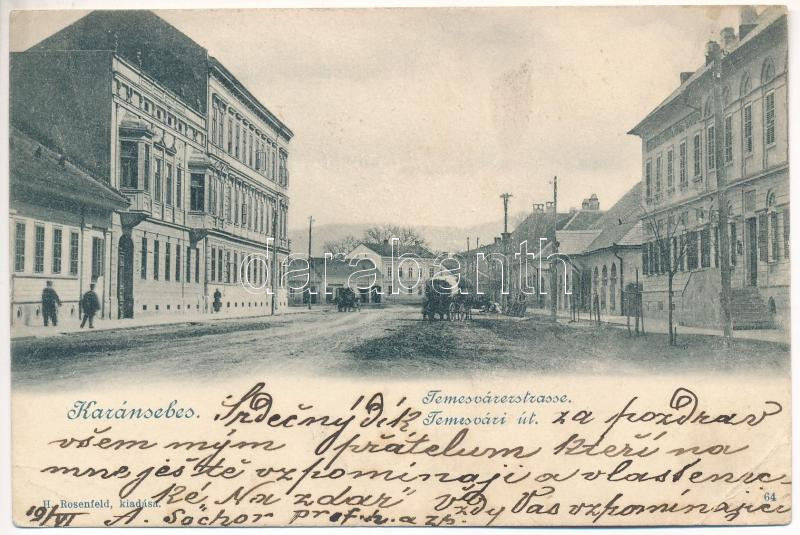 darabanth
Karánsebes.
Temesvárerstrasse.
Temesvári út.
Srdečný dík za pozdrav
všem mým přátelum kteří na
mne ještě vzpomínaji a vlastenec-
ké „Na zdar" Vždy Vás vzpomínající
H. Rosenfeld, kiadása.
64
19/VI A. Sochor